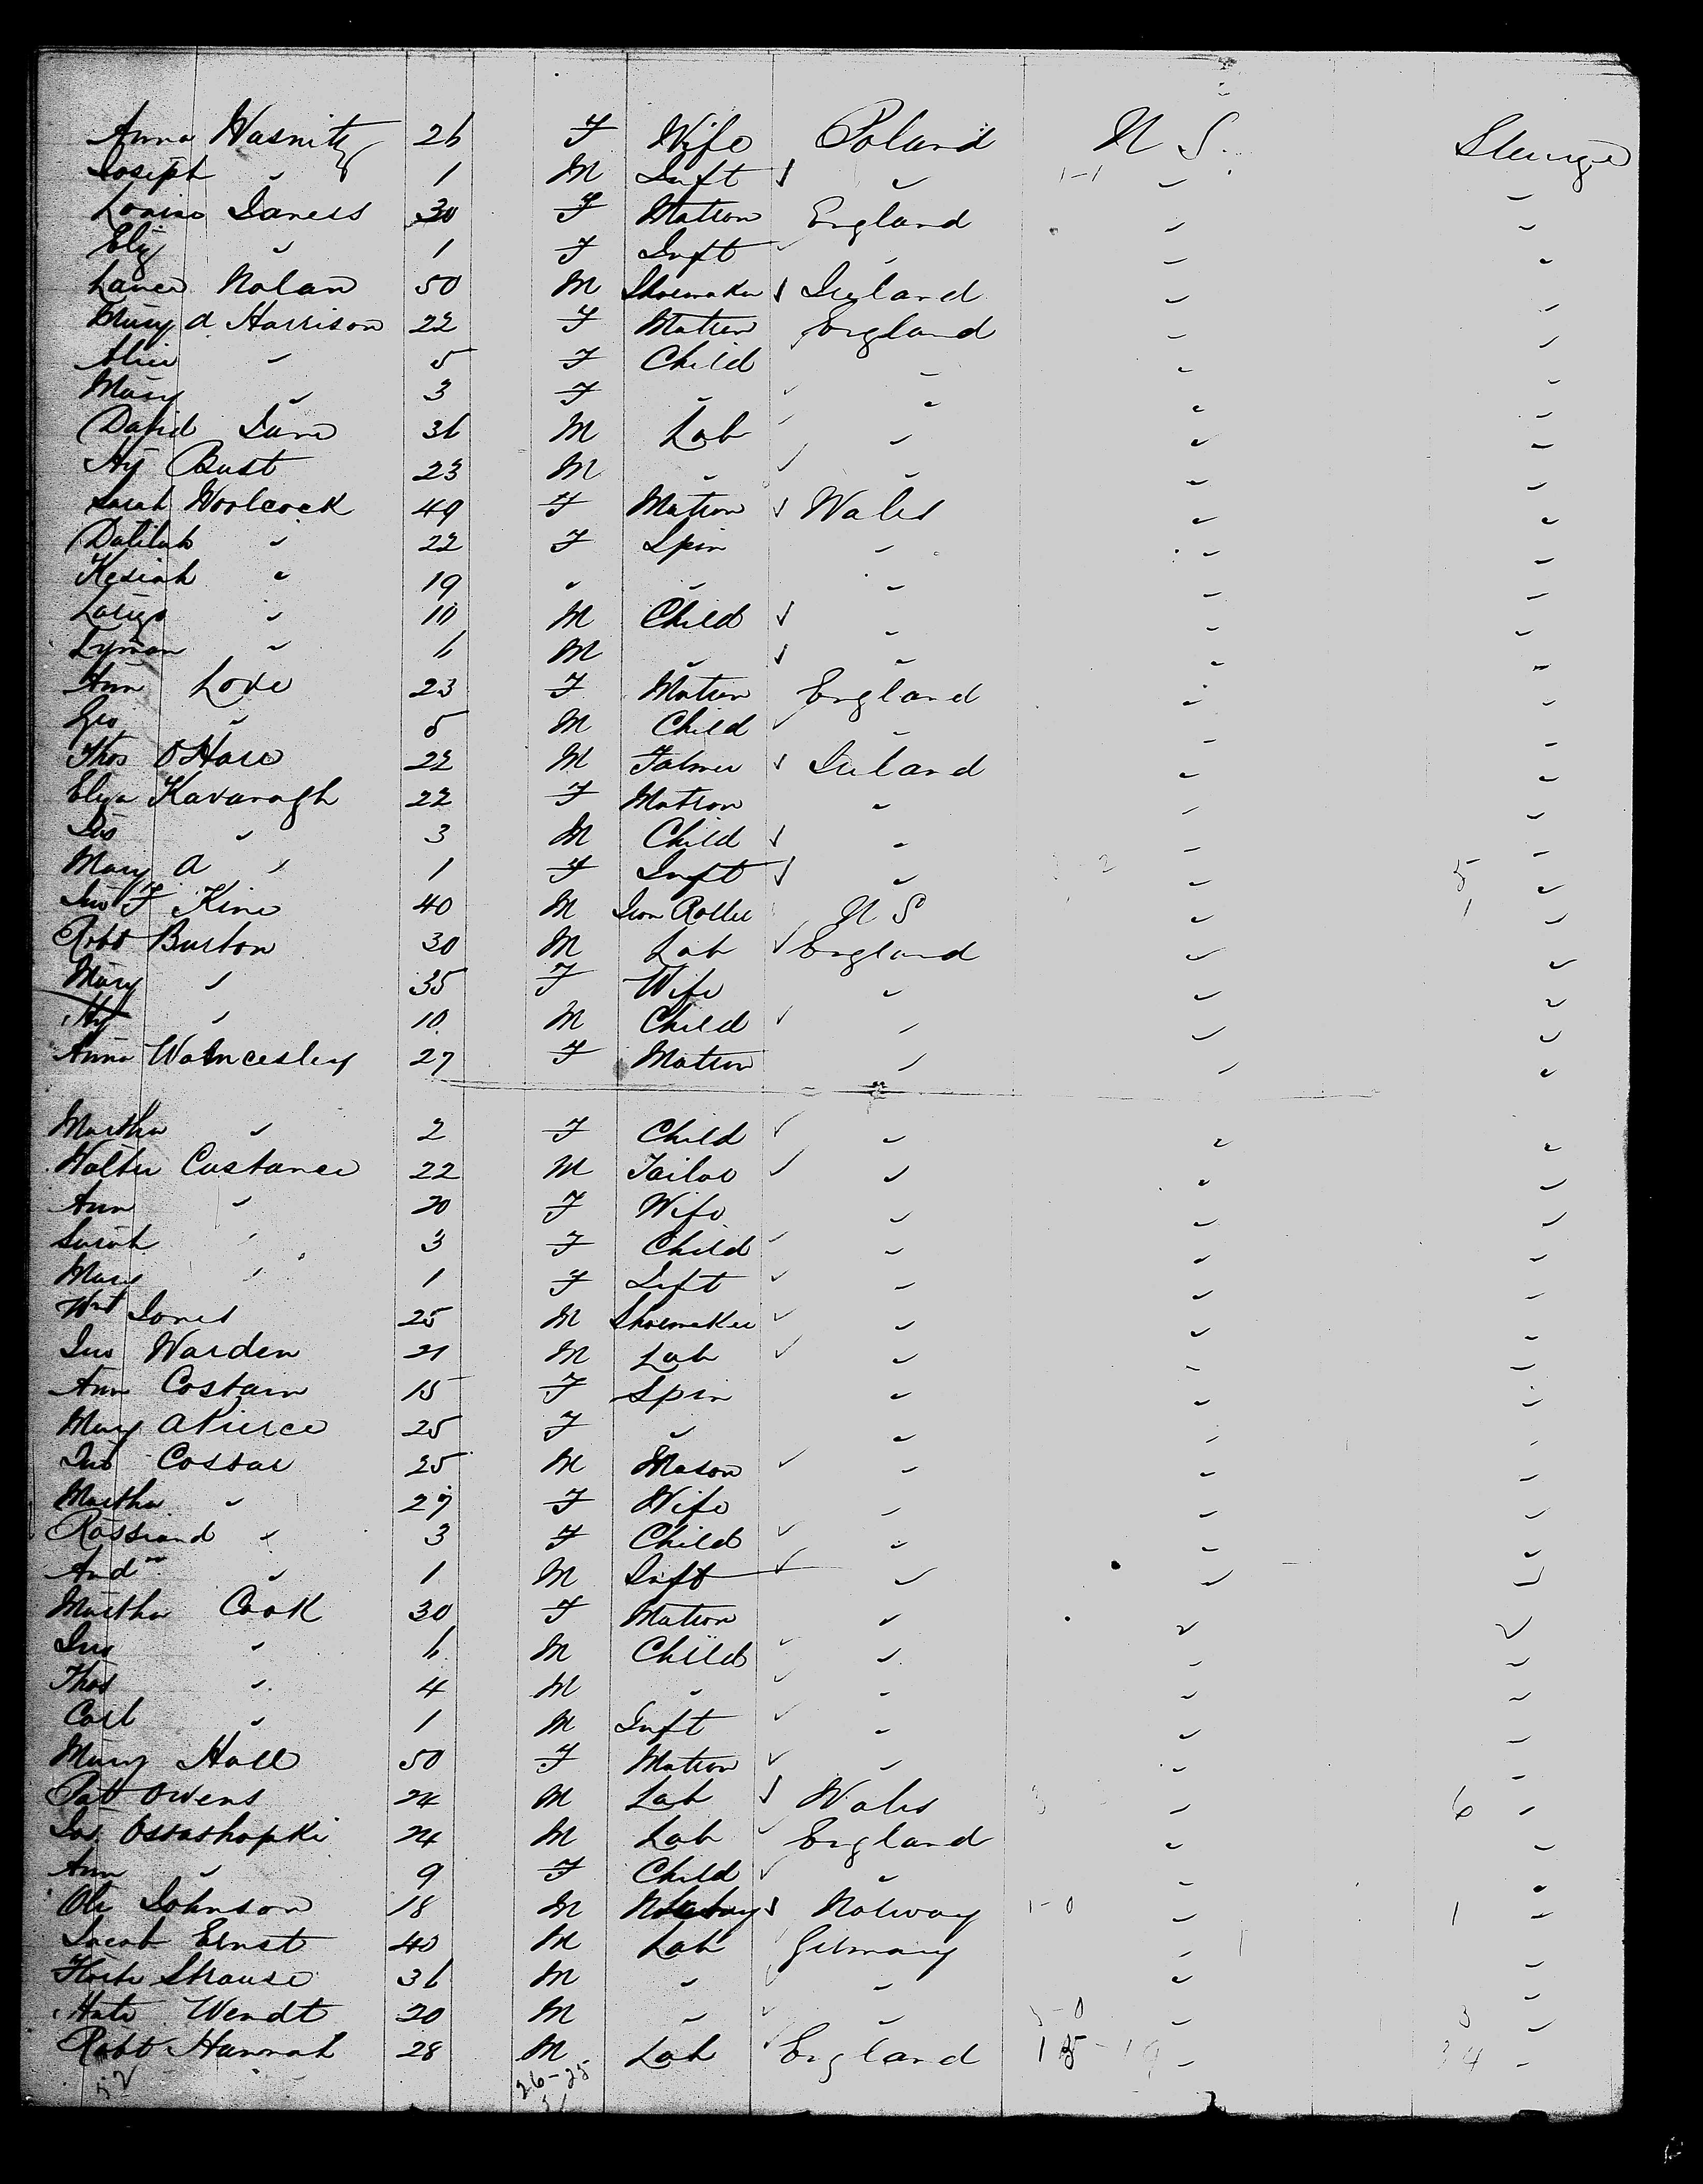 Anna Wasnitz 26 F Wife Poland U S. Steerage
Joseph " 1 M Inft " 1-1 " "
Louisa Janess 30 F Matron England " "
Eliz " 1 F Inft " " "
Lance Nolan 50 M Shoemaker Ireland " "
Mary A Harrison 22 F Matron England " "
Alice " 5 F Child " " "
Mary " 3 F " " " "
David June 36 M Lab " " "
Hy Bust 23 M " " " "
Sarah Woolcock 49 F Matron Wales " "
Dalilah " 22 F Spin " " "
Kesiah " 19 " " " " "
" 10 M Child " " "
Lyman " 6 M " " " "
Ann Love 23 F Matron England " "
Geo " 5 M Child " " "
Thos O'Hare 22 M Farmer Ireland " "
Eliza Kavanagh 22 F Matron " " "
Jas " 3 M Child " " "
Mary A " 1 F Inft " 2 " 5 "
Jno F Kine 40 M Iron Roller U S " 1 "
Robt Burton 30 M Lab England " "
Mary " 35 F Wife " " "
Hy " 10 M Child " " "
Anna Walncesley 27 F Matron " " "
Martha " 2 F Child " " "
Walter Custance 22 M Tailor " " "
Ann " 20 F Wife " " "
Sarah " 3 F Child " " "
Mary " 1 F Inft " " "
Wm Jones 25 M Shoemaker " " "
Jno Warden 21 M Lab " " "
Ann Costain 15 F Spin " " "
Mary A Pierce 25 F " " " "
Jno Cossar 25 M Mason " " "
Martha " 27 F Wife " " "
Rossiand " 3 F Child " " "
Andw " 1 M Inft " " "
Martha Cook 30 F Matron " " "
Jno " 6 M Child " " "
Thos " 4 M " " " "
Carl " 1 M Inft " " "
Mary Hall 50 F Matron " " "
Pat Owens 24 M Lab Wales 3 " 6 "
Jos. Ossashopki 24 M Lab England " "
Ann " 9 F Child " " "
Ole Johnson 18 M Norway 1-0 " 1 "
Jacob Ernst 40 M Lab Germany " "
Strause 36 M " " " "
Wendt 20 M " " 3-0 " 3 "
Robt Hannah 28 M Lab England 15-19 " 34 "
52 26-25
51